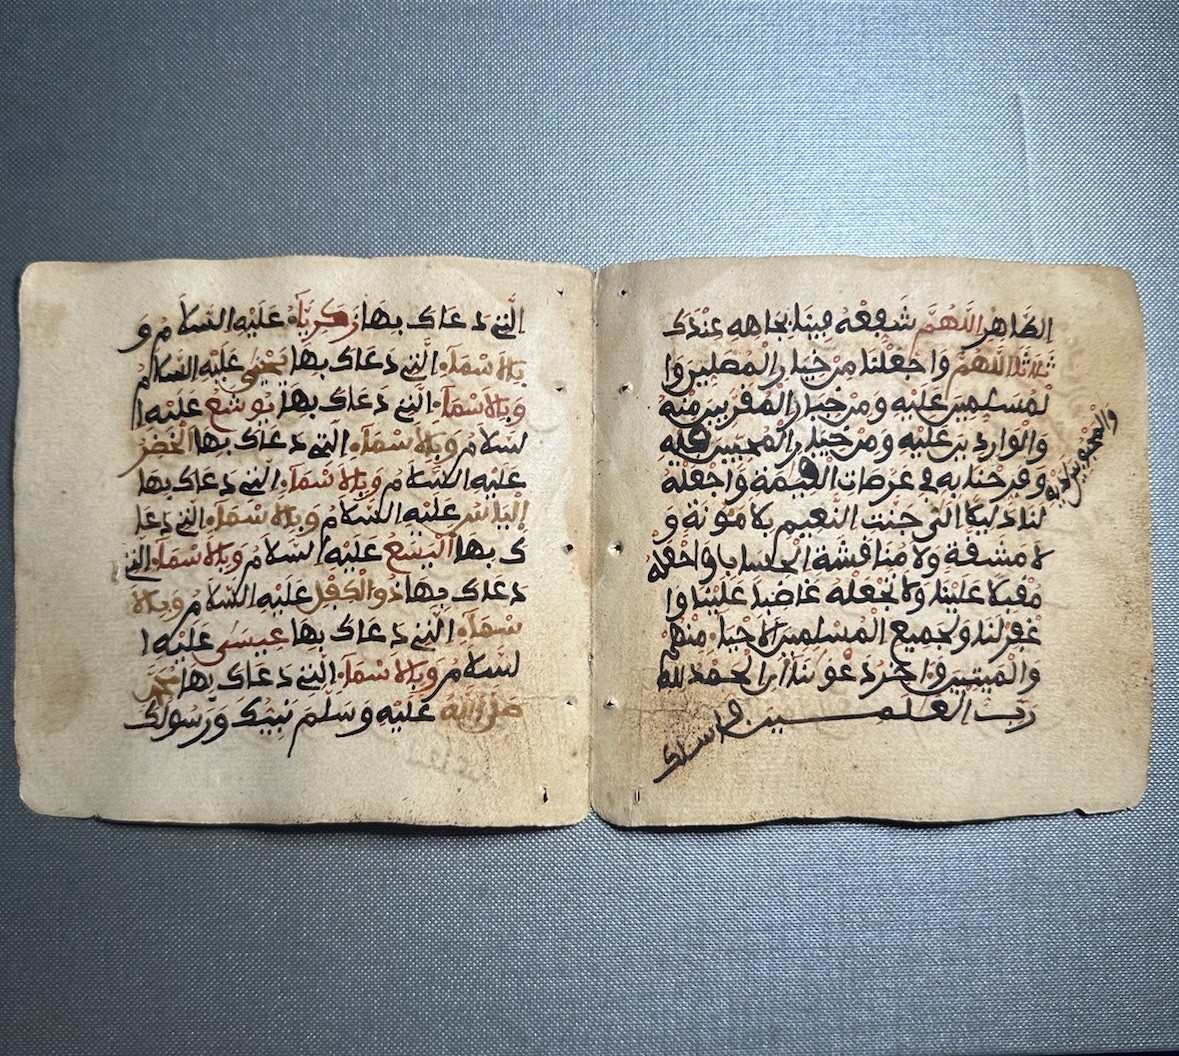 الطاهر اللَّهُمَّ شَفِّعْهُ فِينَا بِجَاهِهِ عِنْدَكَ
ثلاثا اللَّهُمَّ واجعلنا من خيار المصلين وا
لمسلمين عليه ومن خيار المقربين منه
والواردين عليه ومن خيار المحبين فيه
والمحبوبين لديه
وفرحنا به في عرصات القيمة واجعله
لنا دليلا الى جنت النعيم بلا مئونة و
لا مشقة ولا مناقشة الحساب واجعله
مقبلا علينا ولا تجعله غاضبا علينا وا
غفر لنا ولجميع المسلمين الاحياء منهم
والميتين وءاخر دعوينا أن الحمد لله
رب العلمين و اسلك
التي دعاك بها زكرياء عليه السلام و
بالاسماء التي دعاك بها يحيى عليه السلام
وبالاسماء التي دعاك بها يوشع عليه ا
لسلام وبالاسماء التي دعاك بها الخضر
عليه السلام وبالاسماء التي دعاك بها
إلياس عليه السلام وبالاسماء التي دعا
ك بها اليسع عليه السلام وبالاسماء التي
دعاك بها ذو الكفل عليه السلام وبالا
سماء التي دعاك بها عيسى عليه ا
لسلام وبالاسماء التي دعاك بها محمد
صلى الله عليه وسلم نبيك ورسولك